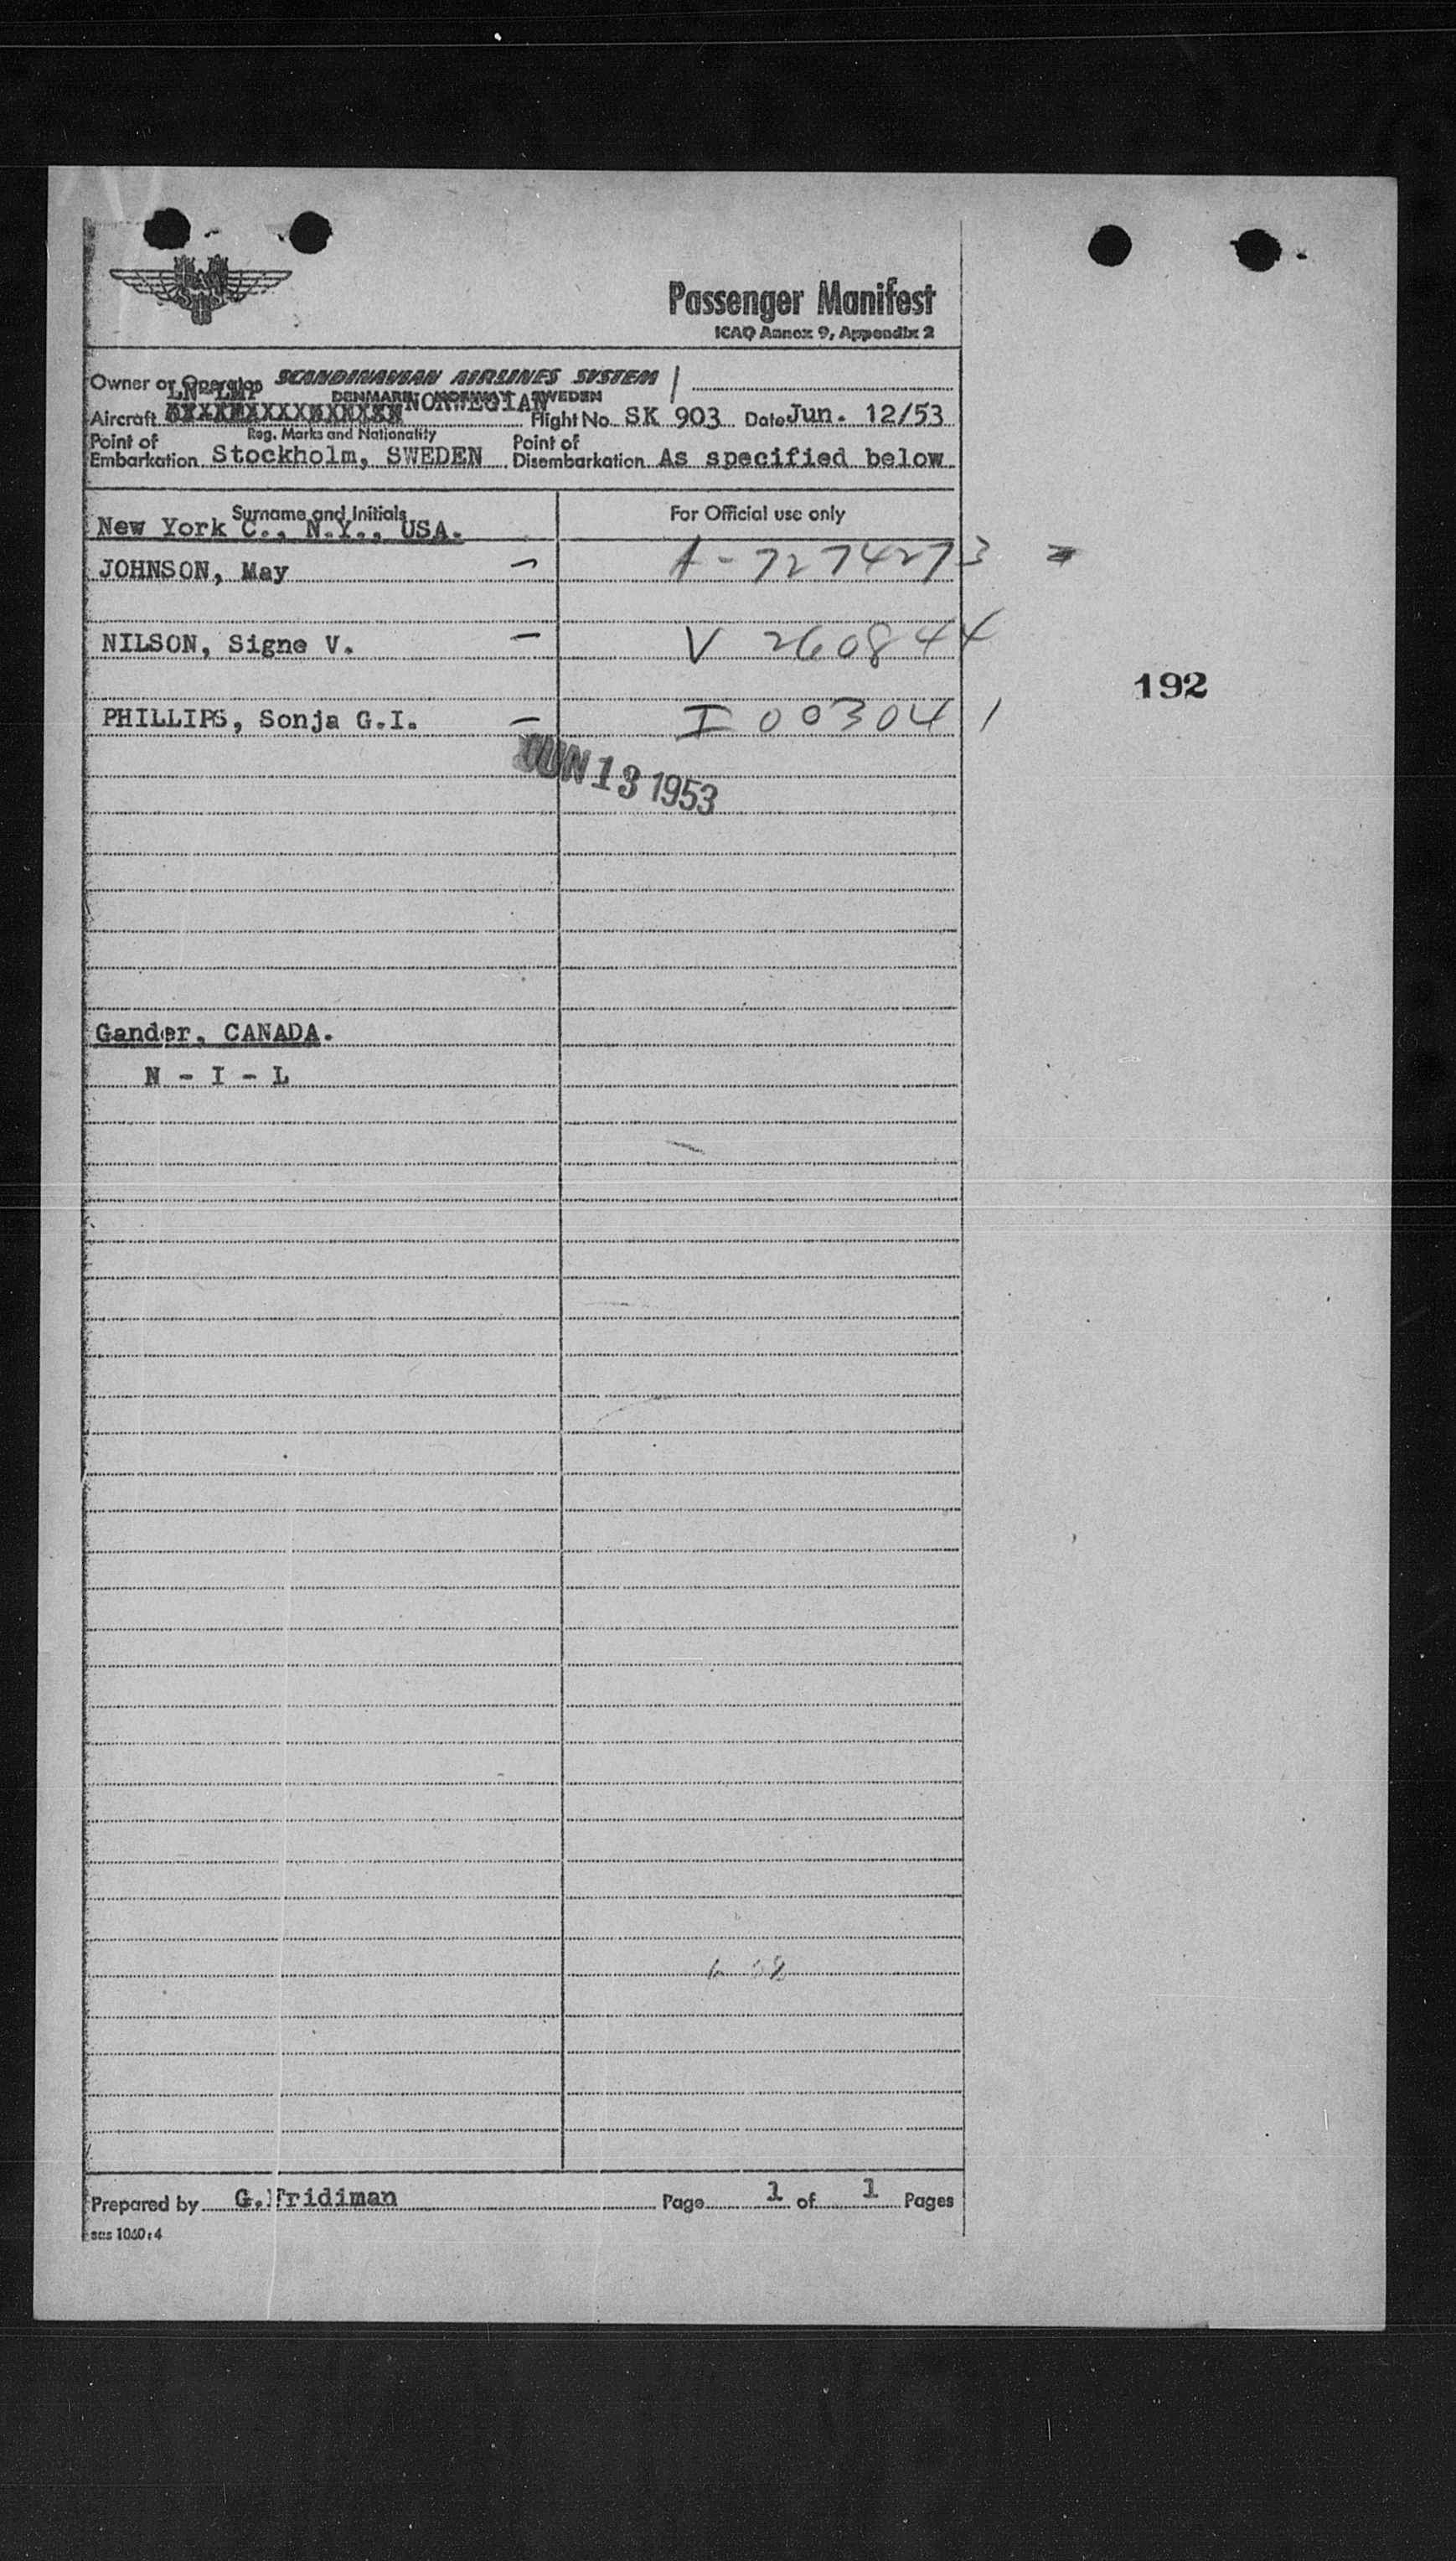 Passenger Manifest
ICAO Annex 9, Appendix 2
Owner or Operator SCANDINAVIAN AIRLINES SYSTEM
DENMARK NORWAY SWEDEN
LN-LMP
Aircraft NORWEGIAN Flight No. SK 903 Date Jun. 12/53
Reg. Marks and Nationality
Point of Embarkation Stockholm, SWEDEN Point of Disembarkation As specified below
Surname and Initials For Official use only
New York C., N.Y., USA.
JOHNSON, May - A-7274273
NILSON, Signe V. - V 260844
192
PHILLIPS, Sonja G.I. - I 003041
JUN 13 1953
Gander, CANADA.
N - I - L
Prepared by G. Fridiman Page 1 of 1 Pages
sas 1060:4